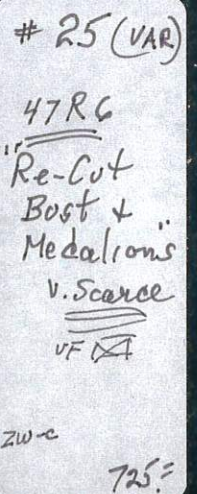 # 25 (VAR)
47R6
"Re-Cut
Bust &
Medalions"
V. Scarce
VF
ZW-C
725=